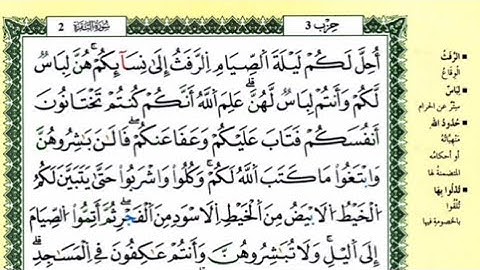 حِزْب 3
سُورَةُ البَقَرَة 2
أُحِلَّ لَكُمْ لَيْلَةَ اَ۬لصِّيَامِ اِ۬لرَّفَثُ إِلَىٰ نِسَآئِكُمْ هُنَّ لِبَاسٞ
لَّكُمْ وَأَنتُمْ لِبَاسٞ لَّهُنَّ عَلِمَ اَ۬للَّهُ أَنَّكُمْ كُنتُمْ تَخْتَانُونَ
أَنفُسَكُمْ فَتَابَ عَلَيْكُمْ وَعَفَا عَنكُمْ فَالَٰنَ بَٰشِرُوهُنَّ
وَابْتَغُواْ مَا كَتَبَ اَ۬للَّهُ لَكُمْ وَكُلُواْ وَاشْرَبُواْ حَتَّىٰ يَتَبَيَّنَ لَكُمُ
اُ۬لْخَيْطُ اُ۬لَابْيَضُ مِنَ اَ۬لْخَيْطِ اِ۬لَاسْوَدِ مِنَ اَ۬لْفَجْرِ ثُمَّ أَتِمُّواْ اُ۬لصِّيَامَ
إِلَى اَ۬ليْلِ وَلَا تُبَٰشِرُوهُنَّ وَأَنتُمْ عَٰكِفُونَ فِے اِ۬لْمَسَٰجِدِ
الرَّفَثُ
الوِقَاعُ
لِبَاسٌ
سِتْرٌ عن الحرام
حُدُودُ الله
مَنْهِيَّاتُه
أو أحكامُه
المتضمنةُ لها
تُدْلُوا بِهَا
تُلْقُوا
بالخصومةِ فيها